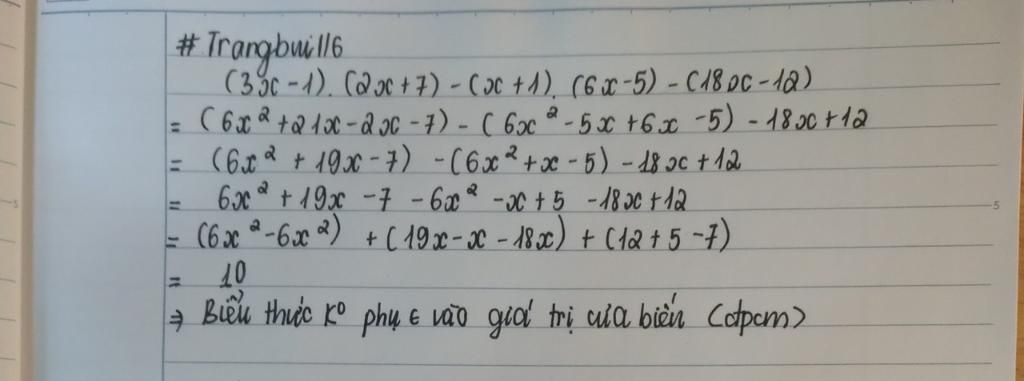 # Trangbui116
(3x - 1). (2x + 7) - (x + 1). (6x - 5) - (18x - 12)
= (6x² + 21x - 2x - 7) - (6x² - 5x + 6x - 5) - 18x + 12
= (6x² + 19x - 7) - (6x² + x - 5) - 18x + 12
= 6x² + 19x - 7 - 6x² - x + 5 - 18x + 12
= (6x² - 6x²) + (19x - x - 18x) + (12 + 5 - 7)
= 10
⇒ Biểu thức K⁰ phụ ϵ vào giá trị của biến (đpcm)